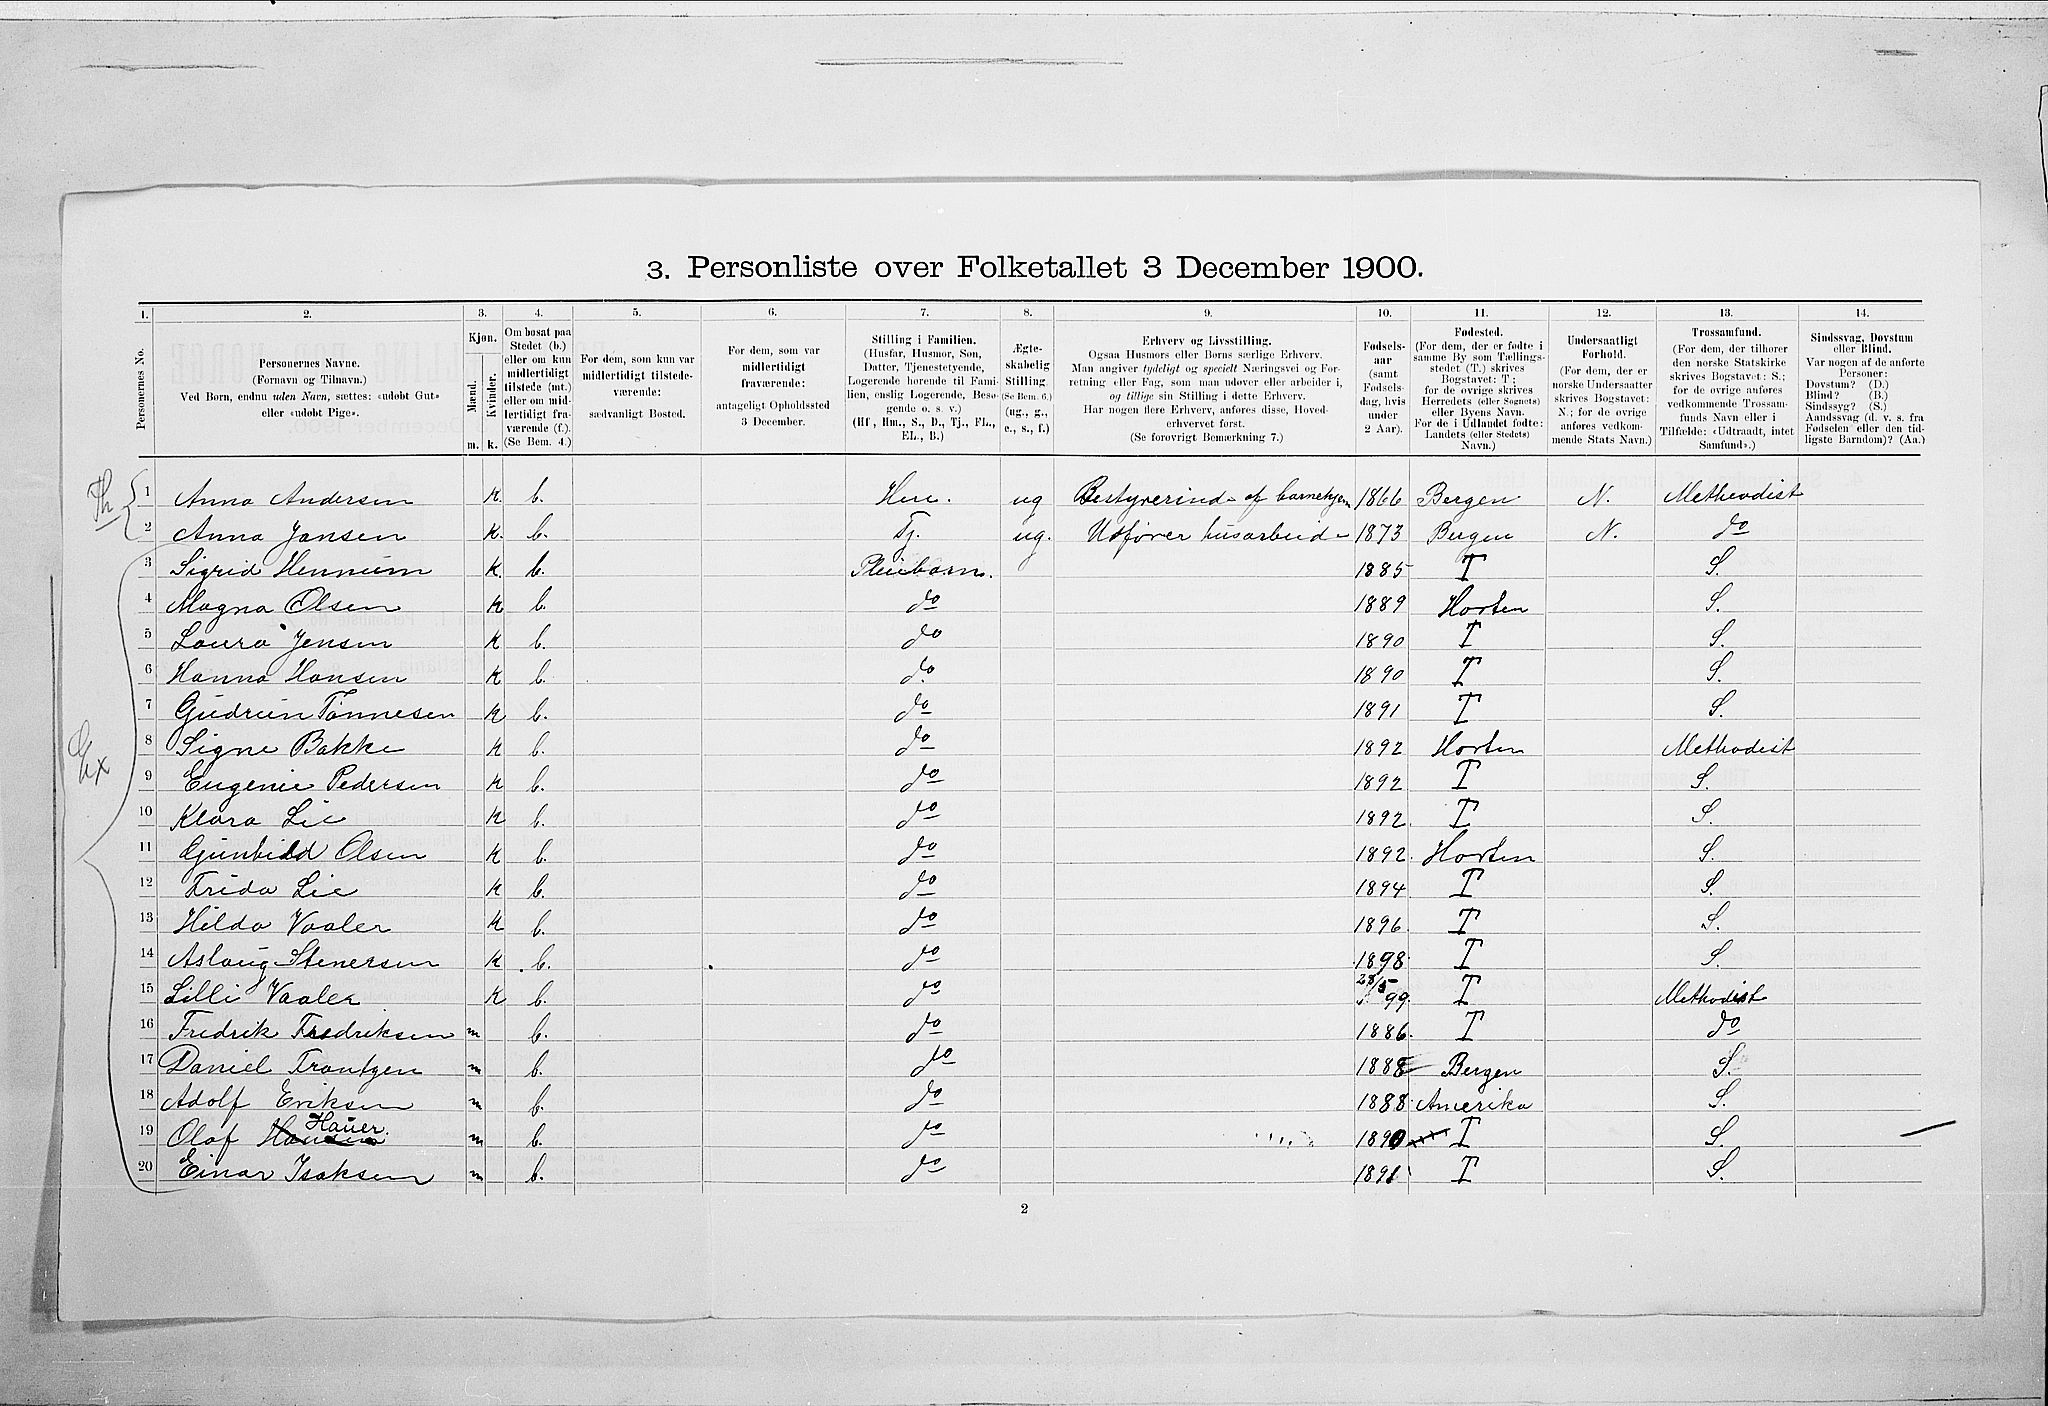 3. Personliste over Folketallet 3 December 1900.
1. 2. 3. 4. 5. 6. 7. 8. 9. 10. 11. 12. 13. 14.
Personernes No.
Personernes Navne.
(Fornavn og Tilnavn.)
Ved Børn, endnu uden Navn, sættes: «udøbt Gut»
eller «udøbt Pige».
Kjøn.
Mænd.
Kvinder.
m. k.
Om bosat paa
Stedet (b.)
eller om kun
midlertidigt
tilstede (mt.)
eller om mid-
lertidigt fra-
værende (f.).
(Se Bem. 4.)
For dem, som kun var
midlertidigt tilstede-
værende:
sædvanligt Bosted.
For dem, som var
midlertidigt
fraværende:
antageligt Opholdssted
3 December.
Stilling i Familien.
(Husfar, Husmor, Søn,
Datter, Tjenestetyende,
Logerende hørende til Fami-
lien, enslig Logerende, Besø-
gende o. s. v.)
(Hf., Hm., S., D., Tj., FL.,
EL., B.)
Ægte-
skabelig
Stilling.
(Se Bem. 6.)
(ug., g.,
e., s., f.)
Erhverv og Livsstilling.
Ogsaa Husmors eller Børns særlige Erhverv.
Man angiver tydeligt og specielt Næringsvei og For-
retning eller Fag, som man udøver eller arbeider i,
og tillige sin Stilling i dette Erhverv.
Har nogen flere Erhverv, anføres disse, Hoved-
erhvervet først.
(Se forøvrigt Bemærkning 7.)
Fødsels-
aar
(samt
Fødsels-
dag, hvis
under
2 Aar).
Fødested.
(For dem, der er fødte i
samme By som Tællings-
stedet (T.) skrives
Bogstavet: T;
for de øvrige skrives
Herredets (eller Sognets)
eller Byens Navn.
For de i Udlandet fødte:
Landets (eller Stedets)
Navn.)
Undersaatligt
Forhold.
(For dem, der er
norske Undersaatter
skrives Bogstavet:
N.; for de øvrige
anføres vedkom-
mende Stats Navn.)
Trossamfund.
(For dem, der tilhører
den norske Statskirke
skrives Bogstavet: S.;
for de øvrige anføres
vedkommende Trossam-
funds Navn eller i
Tilfælde: «Udtraadt, intet
Samfund».)
Sindssvag, Døvstum
eller Blind.
Var nogen af de anførte
Personer:
Døvstum? (D.)
Blind? (B.)
Sindssyg? (S.)
Aandssvag (d. v. s. fra
Fødselen eller den tid-
ligste Barndom)? (Aa.)
1 Anna Andersen K. b. ug Bestyrerind af barnehjem 1866 Bergen N. Metheodist
2 Anna Jansen K. b. Tj. ug. Udfører husarbeid 1873 Bergen N. do
3 Sigrid Hennum K. b. Pleiebarn. 1885 T S.
4 Magna Olsen K b. do 1889 Horten S.
5 Laura Jensen K b. do 1890 T S.
6 Hanna Hansen K b. do 1890 T S.
7 Gudrun Tønnesen K b. do 1891 T S.
8 Signe Bakke K b. do 1892 Horten Methodist
9 Eugenie Pedersen K b. do 1892 T S.
10 Klara Lie K b. do 1892. T S.
11 Gunhild Olsen K b. do 1892. Horten S.
12 Frida Lie K b. do 1894 T S.
13 Hilda Vaaler K b. do 1896. T S.
14 Aslaug Stenersen K b. do 1898 T S.
15 Lilli Vaaler K b. do 28/5 99. T Methodist
16 Fredrik Fredriksen m b. do 1886. T do
17 Daniel Frantzen m b. do 1888 Bergen S.
18 Adolf Eriksen m b. do 1888. Amerika S.
Hauer.
19 Olaf Hansen m b. do 1890 T S.
20 Einar Isaksen m b. do 1891 T S.
2